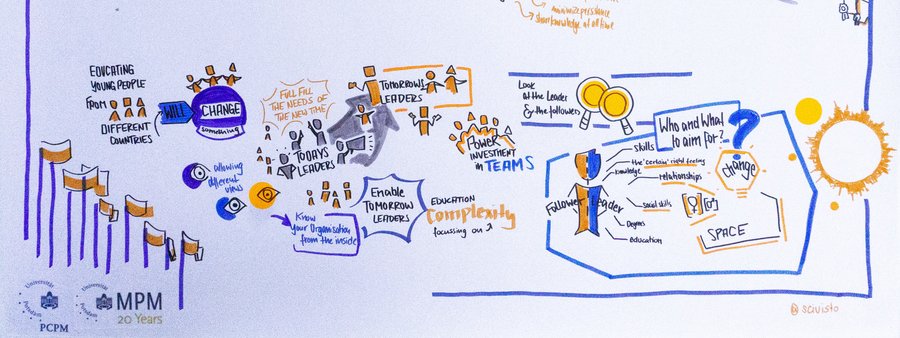 minimize presidance
share knowledge at all time
EDUCATING
YOUNG PEOPLE
FROM
DIFFERENT
COUNTRIES
WILL
CHANGE
something
allowing
different
views
FULL FILL
THE NEEDS OF
THE NEW TIME
TODAYS
LEADERS
TOMORROWS
LEADERS
Power
INVESTMENT
in TEAMS
Know
your Organisation
from the inside
Enable
TOMORROW
LEADERS
EDUCATION
Complexity
focussing on
Look
at the Leader
& the follower
Who and What
to aim for?
?
skills
the "certain" right feeling
knowledge
relationships
change
Follower Leader
social skills
Degrees
education
SPACE
Universität
Potsdam
PCPM
Universität
Potsdam
MPM
20 Years
@ scivisto